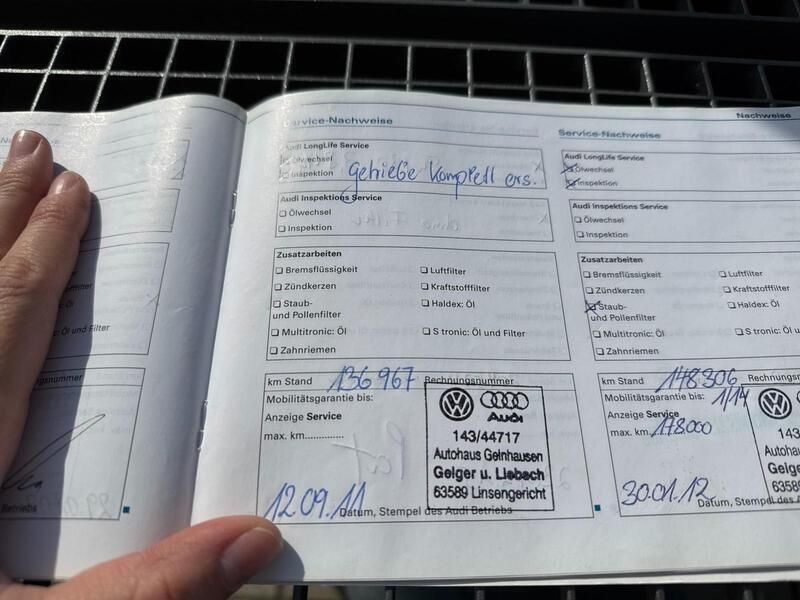 Service-Nachweise
Audi LongLife Service
Ölwechsel
Inspektion Getriebe komplett ers.
Audi Inspektions Service
Ölwechsel
Inspektion
Zusatzarbeiten
Bremsflüssigkeit
Luftfilter
Zündkerzen
Kraftstofffilter
Staub-
und Pollenfilter
Haldex: Öl
Multitronic: Öl
S tronic: Öl und Filter
Zahnriemen
km Stand 136967 Rechnungsnummer
Mobilitätsgarantie bis:
Anzeige Service
max. km..............
Audi
143/44717
Autohaus Gelnhausen
Geiger u. Liebach
63589 Linsengericht
12.09.11
Datum, Stempel des Audi Betriebs
Nachweise
Service-Nachweise
Audi LongLife Service
Ölwechsel
Inspektion
Audi Inspektions Service
Ölwechsel
Inspektion
Zusatzarbeiten
Bremsflüssigkeit
Luftfilter
Zündkerzen
Kraftstofffilter
Staub-
und Pollenfilter
Haldex: Öl
Multitronic: Öl
S tronic: Öl und
Zahnriemen
km Stand 148306 Rechnungsnumm
Mobilitätsgarantie bis: 1/14
Anzeige Service
max. km 178.000
143/
Autohaus
Geiger
6358
30.01.12
Datum, Stempel des Audi
Betriebs